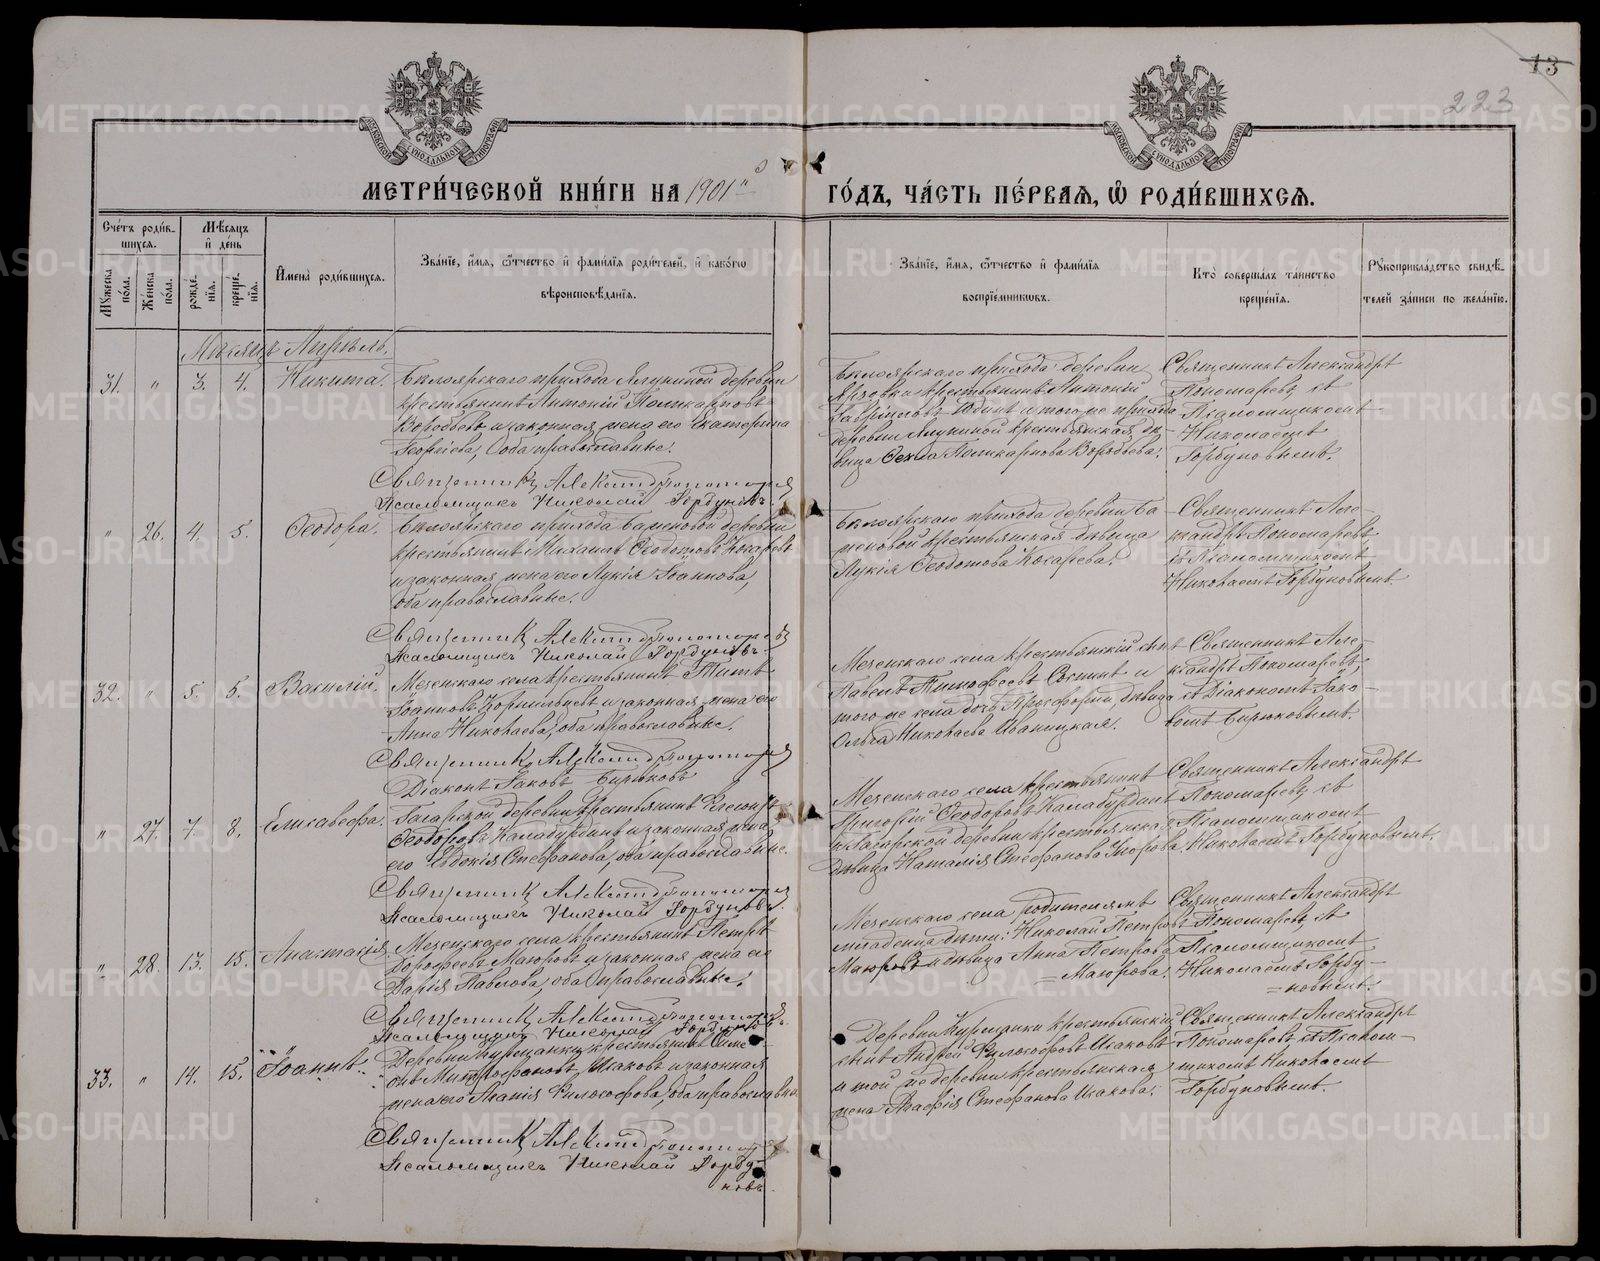 13
223
МОСКОВСКОЙ СѴНОДАЛЬНОЙ ТИПОГРАФІИ
МОСКОВСКОЙ СѴНОДАЛЬНОЙ ТИПОГРАФІИ
МЕТРИ́ЧЕСКОЙ КНИ́ГИ НА 1901й ГО́ДЪ, ЧА́СТЬ ПЕ́РВАЯ, Ѡ РОДИ́ВШИХСЯ.
Сче́тъ роди́в-
шихся.
Мѣ́сяцъ
и҆ де́нь
Му́жеска
по́ла.
Же́нска
по́ла.
рожде́-
нїя.
креще́-
нїя.
И҆мена̀ роди́вшихся.
Зва́нїе, и҆́мя, ѻ҆́тчество и҆ фами́лїя роди́телей, и҆ како́гѡ
вѣроисповѣ́данїя.
Зва́нїе, и҆́мя, ѻ҆́тчество и҆ фами́лїя
воспрїе́мниковъ.
Кто̀ соверша́лъ та́инство
креще́нїя.
Рꙋкоприкла́дство свидѣ́-
телей за́писи по жела́нїю.
Мѣсяцъ Апрѣль.
31. " 3. 4. Никита.
Бѣлоярскаго прихода Ялуниной деревни
крестьянинъ Антоній Поликарповъ
Воробьевъ и законная жена его Екатерина
Георгіева, оба православные.
Священникъ Александръ Пономаревъ
Псаломщикъ Николай Горбуновъ.
Бѣлоярскаго прихода деревни
крестьянинъ Антоній
Гавриловъ и того же прихода
деревни Ялуниной крестьянская дѣ-
вица Ѳекла Поликарпова Воробьева.
Священникъ Александръ
Пономаревъ съ
Псаломщикомъ
Николаемъ
Горбуновымъ.
" 26. 4. 5. Ѳеодора.
Бѣлоярскаго прихода Баженовой деревни
крестьянинъ Михаилъ Ѳеодотовъ Кокаревъ
и законная жена его Лукія Іоаннова,
оба православные.
Священникъ Александръ Пономаревъ
Псаломщикъ Николай Горбуновъ.
Бѣлоярскаго прихода деревни Ба-
женовой крестьянская дѣвица
Лукія Ѳеодотова Кокарева.
Священникъ Але-
ксандръ Пономаревъ
съ Псаломщикомъ
Николаемъ Горбуновымъ.
32. " 5. 6. Василій.
Мезенскаго села крестьянинъ Титъ
Іоанновъ Корнильцевъ и законная жена его
Анна Николаева, оба православные.
Священникъ Александръ Пономаревъ
Діаконъ Іаковъ Бирюковъ
Мезенскаго села крестьянскій сынъ
Павелъ Тимофеевъ Соснинъ и
того же села дочь Просфорни, дѣвица
Ольга Николаева Иваницкая.
Священникъ Але-
ксандръ Пономаревъ
съ Діакономъ Іако-
вомъ Бирюковымъ.
" 27. 7. 8. Елисавефа.
Гагарской деревни крестьянинъ
Ѳеодоровъ Калабурдинъ и законная жена
его Евдокія Стефанова, оба православные.
Священникъ Александръ Пономаревъ
Псаломщикъ Николай Горбуновъ.
Мезенскаго села крестьянинъ
Григорій Ѳеодоровъ Калабурдинъ
и Гагарской деревни крестьянская
дѣвица Наталія Стефанова Упорова.
Священникъ Александръ
Пономаревъ съ
Псаломщикомъ
Николаемъ Горбуновымъ.
" 28. 13. 15. Анастасія
Мезенскаго села крестьянинъ Петръ
Дорофеевъ Маюровъ и законная жена его
Дарія Павлова, оба православные.
Священникъ Александръ Пономаревъ
Псаломщикъ Николай Горбуновъ.
Мезенскаго села родителямъ
младенца дѣти: Николай Петровъ
Маюровъ и дѣвица Анна Петрова
= Маюрова.
Священникъ Александръ
Пономаревъ съ
Псаломщикомъ
Николаемъ Горбу-
= новымъ.
33. " 14. 15. Іоаннъ.
Деревни Курманки крестьянинъ Симе-
онъ Митрофановъ Исаковъ и законная
жена его Агапія Философова, оба православны.
Священникъ Александръ Пономаревъ
Псаломщикъ Николай Горбу-
новъ.
Деревни Курманки крестьянскій
сынъ Андрей Философовъ Исаковъ
и той же деревни крестьянская
жена Агафія Стефанова Исакова.
Священникъ Александръ
Пономаревъ съ Псалом-
щикомъ Николаемъ
Горбуновымъ.
METRIKI.GASO-URAL.RU